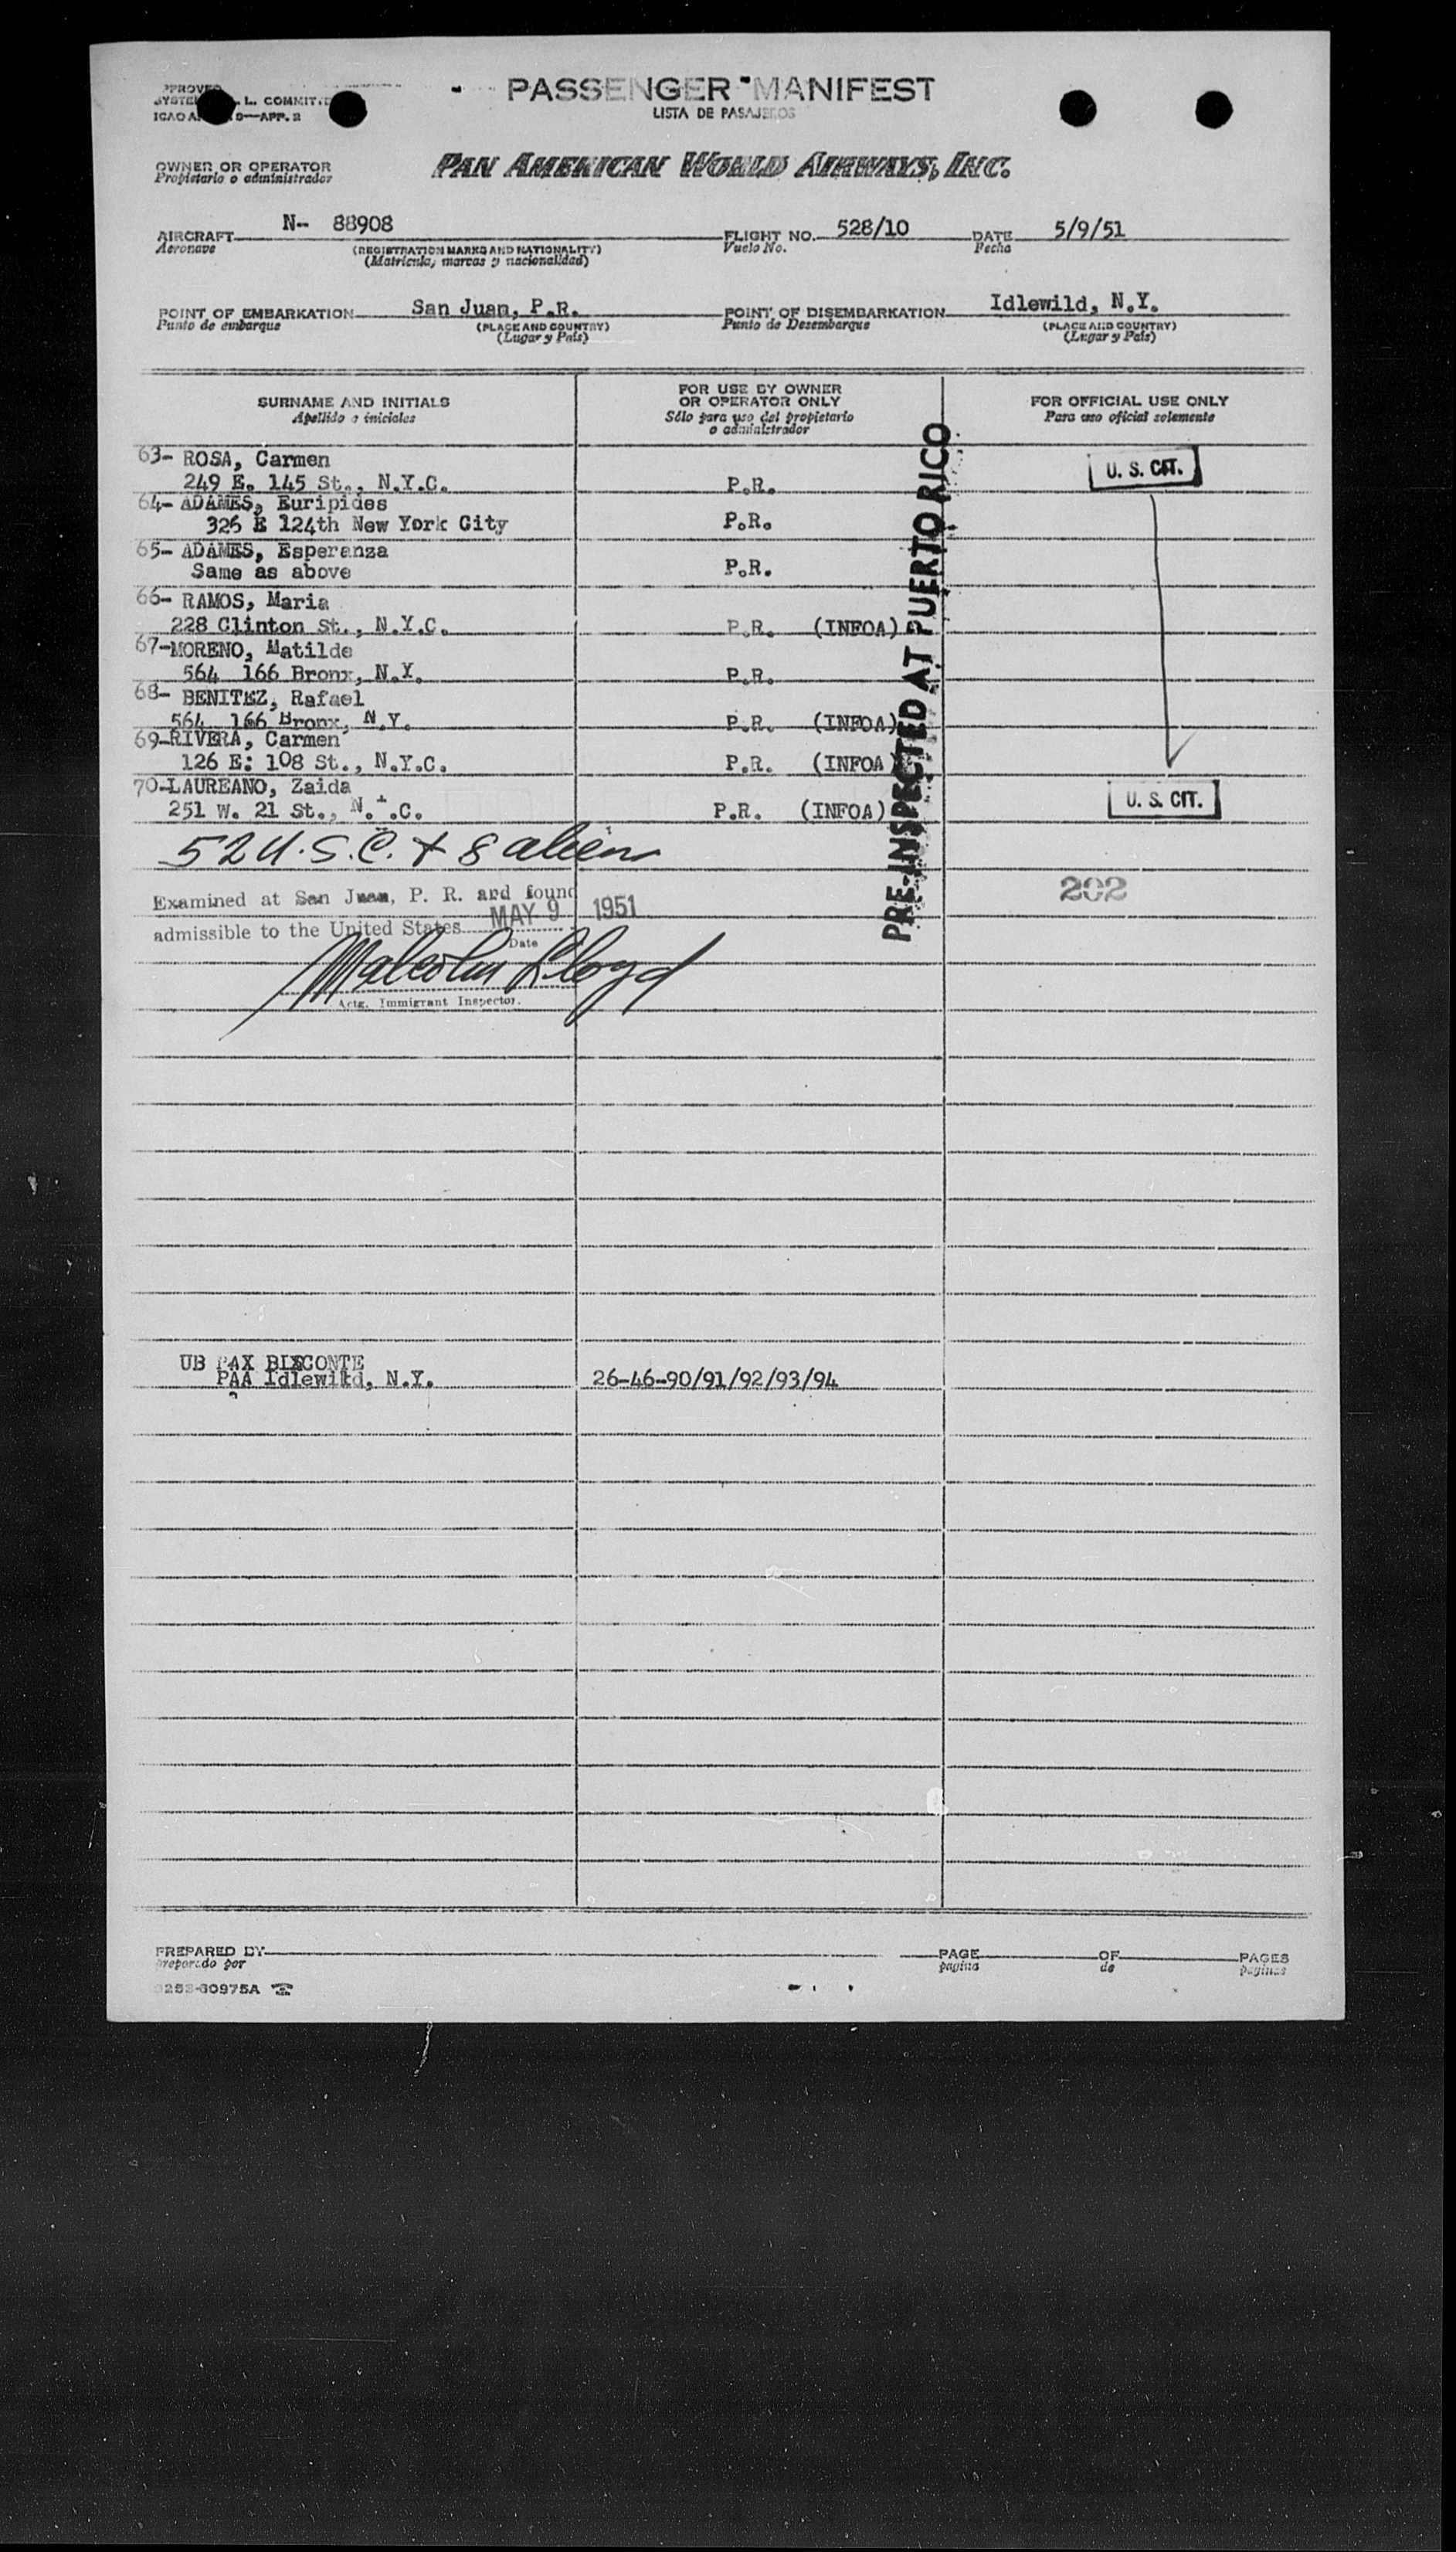 PASSENGER MANIFEST
LISTA DE PASAJEROS
L. COMMITTEE
APP. 2
OWNER OR OPERATOR
Propietario o administrador
PAN AMERICAN WORLD AIRWAYS, INC.
AIRCRAFT N- 88908 FLIGHT NO. 528/10 DATE 5/9/51
Aeronave (REGISTRATION MARKS AND NATIONALITY) Vuelo No. Fecha
(Matricula, marcas y nacionalidad)
POINT OF EMBARKATION San Juan, P.R. POINT OF DISEMBARKATION Idlewild, N.Y.
Punto de embarque (PLACE AND COUNTRY) Punto de Desembarque (PLACE AND COUNTRY)
(Lugar y País) (Lugar y País)
SURNAME AND INITIALS
Apellido e iniciales
FOR USE BY OWNER
OR OPERATOR ONLY
Sólo para uso del propietario
o administrador
FOR OFFICIAL USE ONLY
Para uso oficial solamente
63- ROSA, Carmen
249 E. 145 St., N.Y.C. P.R. U. S. CIT.
64- ADAMES, Euripides
326 E 124th New York City P.R.
65- ADAMES, Esperanza
Same as above P.R.
66- RAMOS, Maria
228 Clinton St., N.Y.C. P.R. (INFOA)
67-MORENO, Matilde
564 166 Bronx, N.Y. P.R.
68- BENITEZ, Rafael
564 166 Bronx, N.Y. P.R. (INFOA)
69-RIVERA, Carmen
126 E: 108 St., N.Y.C. P.R. (INFOA
70-LAUREANO, Zaida
251 W. 21 St., N. .C. P.R. (INFOA) U. S. CIT.
PRE-INSPECTED AT PUERTO RICO
52 U.S.C. + 8 aliens
Examined at San Juan, P. R. and found
202
admissible to the United States MAY 9 1951
Date
Malcolm Lloyd
Actg. Immigrant Inspector.
UB PAX
PAA Idlewild, N.Y. 26-46-90/91/92/93/94
PREPARED BY PAGE OF PAGES
preparado por pagina de paginas
60975A